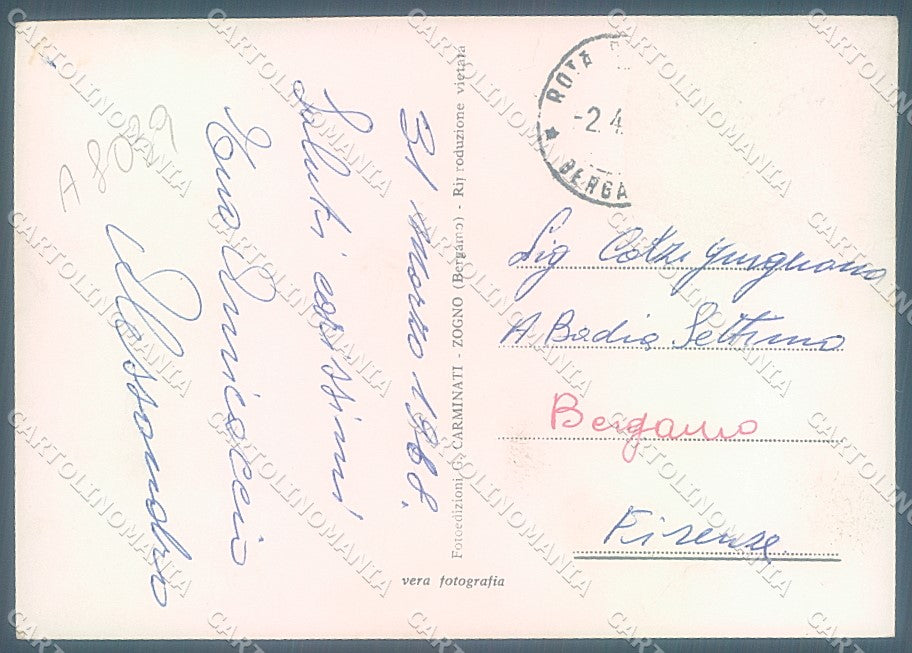 A 8029
31 Marzo 1968.
Saluti carissimi
Alessandro
Fotoedizioni G. CARMINATI - ZOGNO (Bergamo) - Riproduzione vietata
vera fotografia
ROTA
-2.4
BERGA
Sig
A Badia Settimo
Bergamo
Firenze
CARTOLINOMANIA